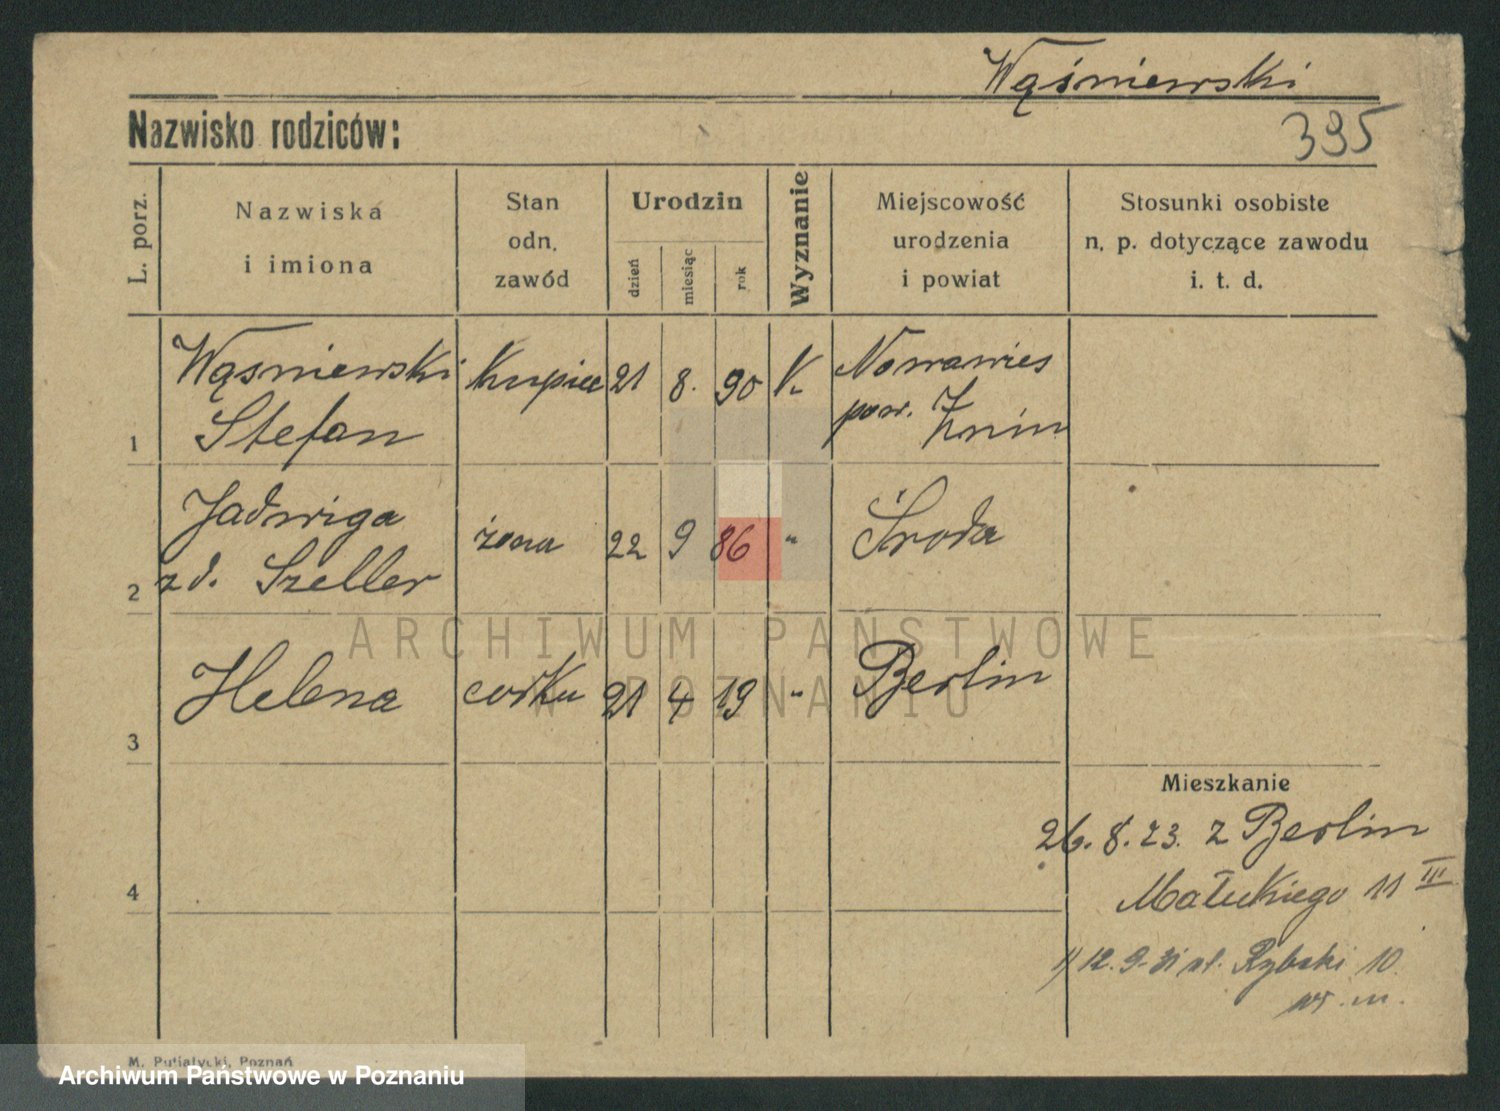 Wąśniewski
Nazwisko rodziców:
395
L. porz.
Nazwiska
i imiona
Stan
odn.
zawód
Urodzin
dzień
miesiąc
rok
Wyznanie
Miejscowość
urodzenia
i powiat
Stosunki osobiste
n. p. dotyczące zawodu
i. t. d.
1
Wąśniewski
Stefan
kupiec
21
8.
90
K
Nowawieś
pow. Żnin
2
Jadwiga
zd. Szeller
żona
22
9
86
"
Środa
3
Helena
córka
21
4
19
"
Berlin
4
Mieszkanie
26. 8. 23. z Berlin
Małeckiego 11 III
1) 12. 9. 31 st. Rybaki 10
w. m.
M. Putiatycki, Poznań
ARCHIWUM PAŃSTWOWE
W POZNANIU
Archiwum Państwowe w Poznaniu